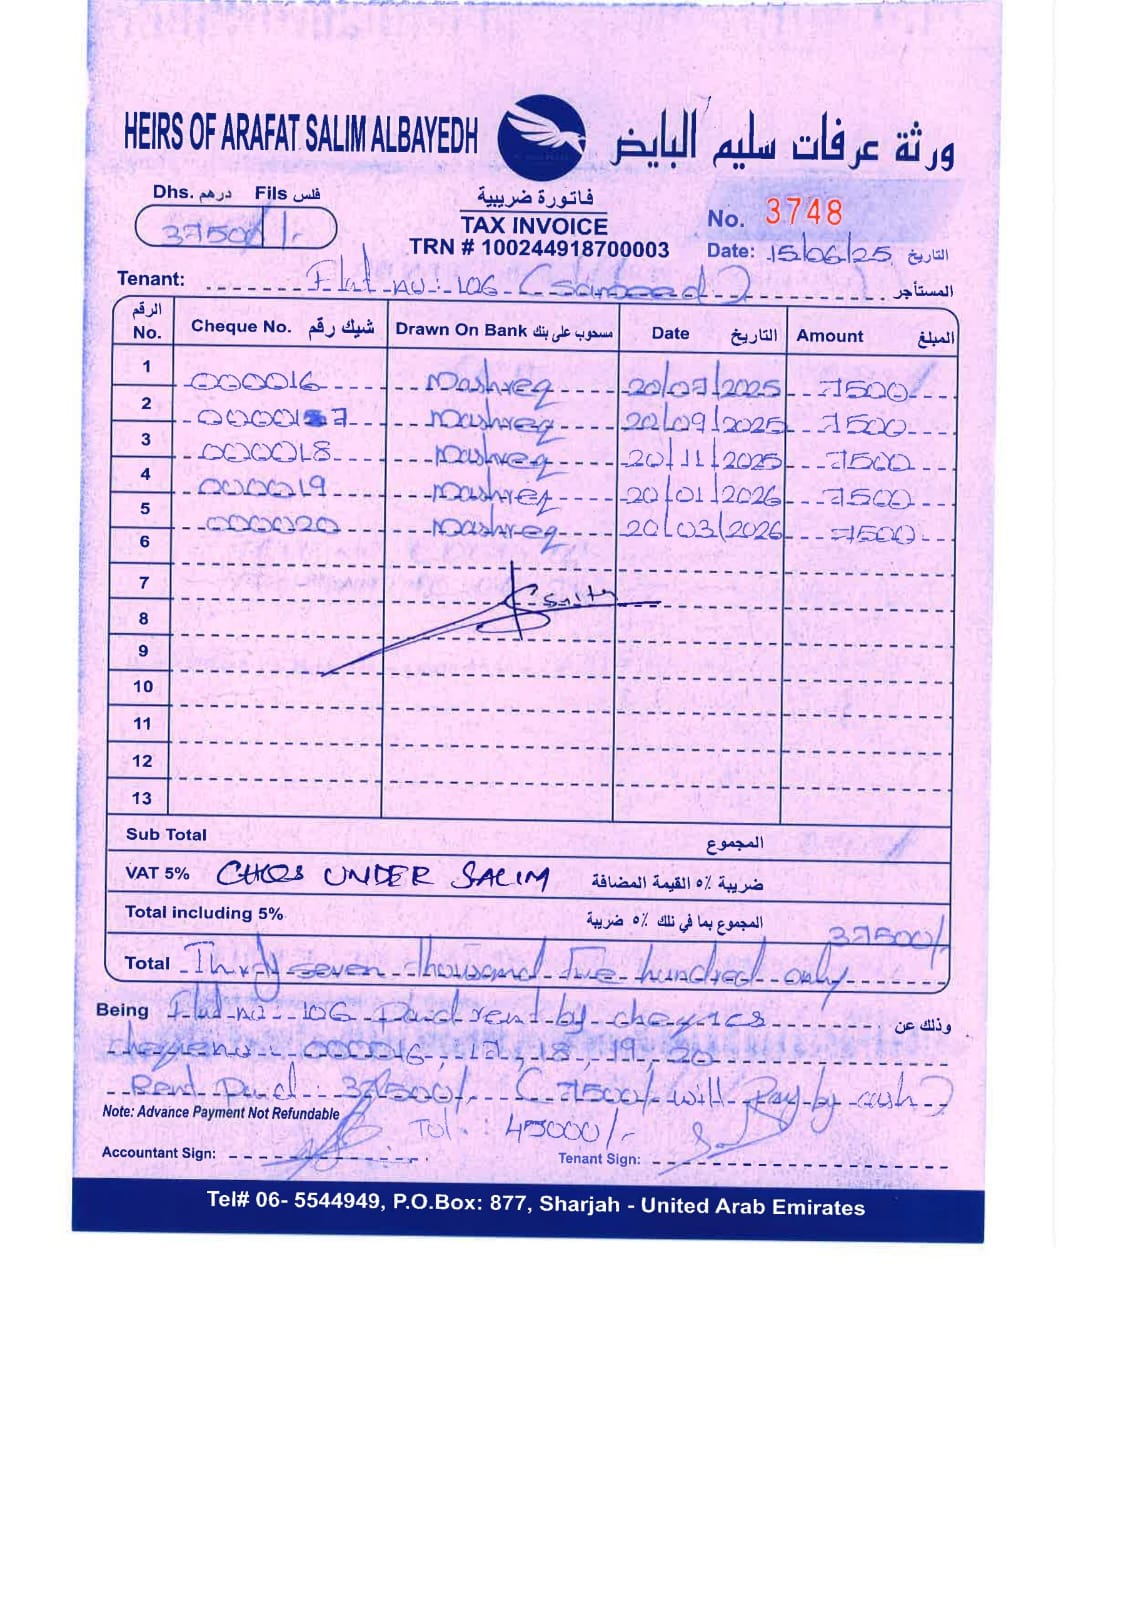 HEIRS OF ARAFAT SALIM ALBAYEDH ورثة عرفات سليم البايض
Dhs. درهم Fils فلس
37500/-
فاتورة ضريبية
TAX INVOICE
TRN # 100244918700003
No. 3748
Date: 15/06/25 التاريخ
Tenant: Flat no: 106 المستأجر
الرقم No. Cheque No. شيك رقم Drawn On Bank مسحوب على بنك Date التاريخ Amount المبلغ
1 000016 Mashreq 20/07/2025 7500/
2 0000 17 Mashreq 20/09/2025 7500
3 000018 Mashreq 20/11/2025 7500
4 000019 Mashreq 20/01/2026 7500
5 000020 Mashreq 20/03/2026 7500
6
7
8
9
10
11
12
13
Sub Total المجموع
VAT 5% CHQS UNDER SALIM ضريبة ٥% القيمة المضافة
Total including 5% المجموع بما في ذلك ٥% ضريبة 37500/-
Total Thirty seven thousand five hundred only
Being Flat no: 106 Paid rent by cheques وذلك عن
cheque no: 000016, 17, 18, 19, 20
Rent Paid: 37500/- (7500/- will Pay by cash)
Note: Advance Payment Not Refundable
Tot: 45000/-
Accountant Sign: Tenant Sign:
Tel# 06- 5544949, P.O.Box: 877, Sharjah - United Arab Emirates